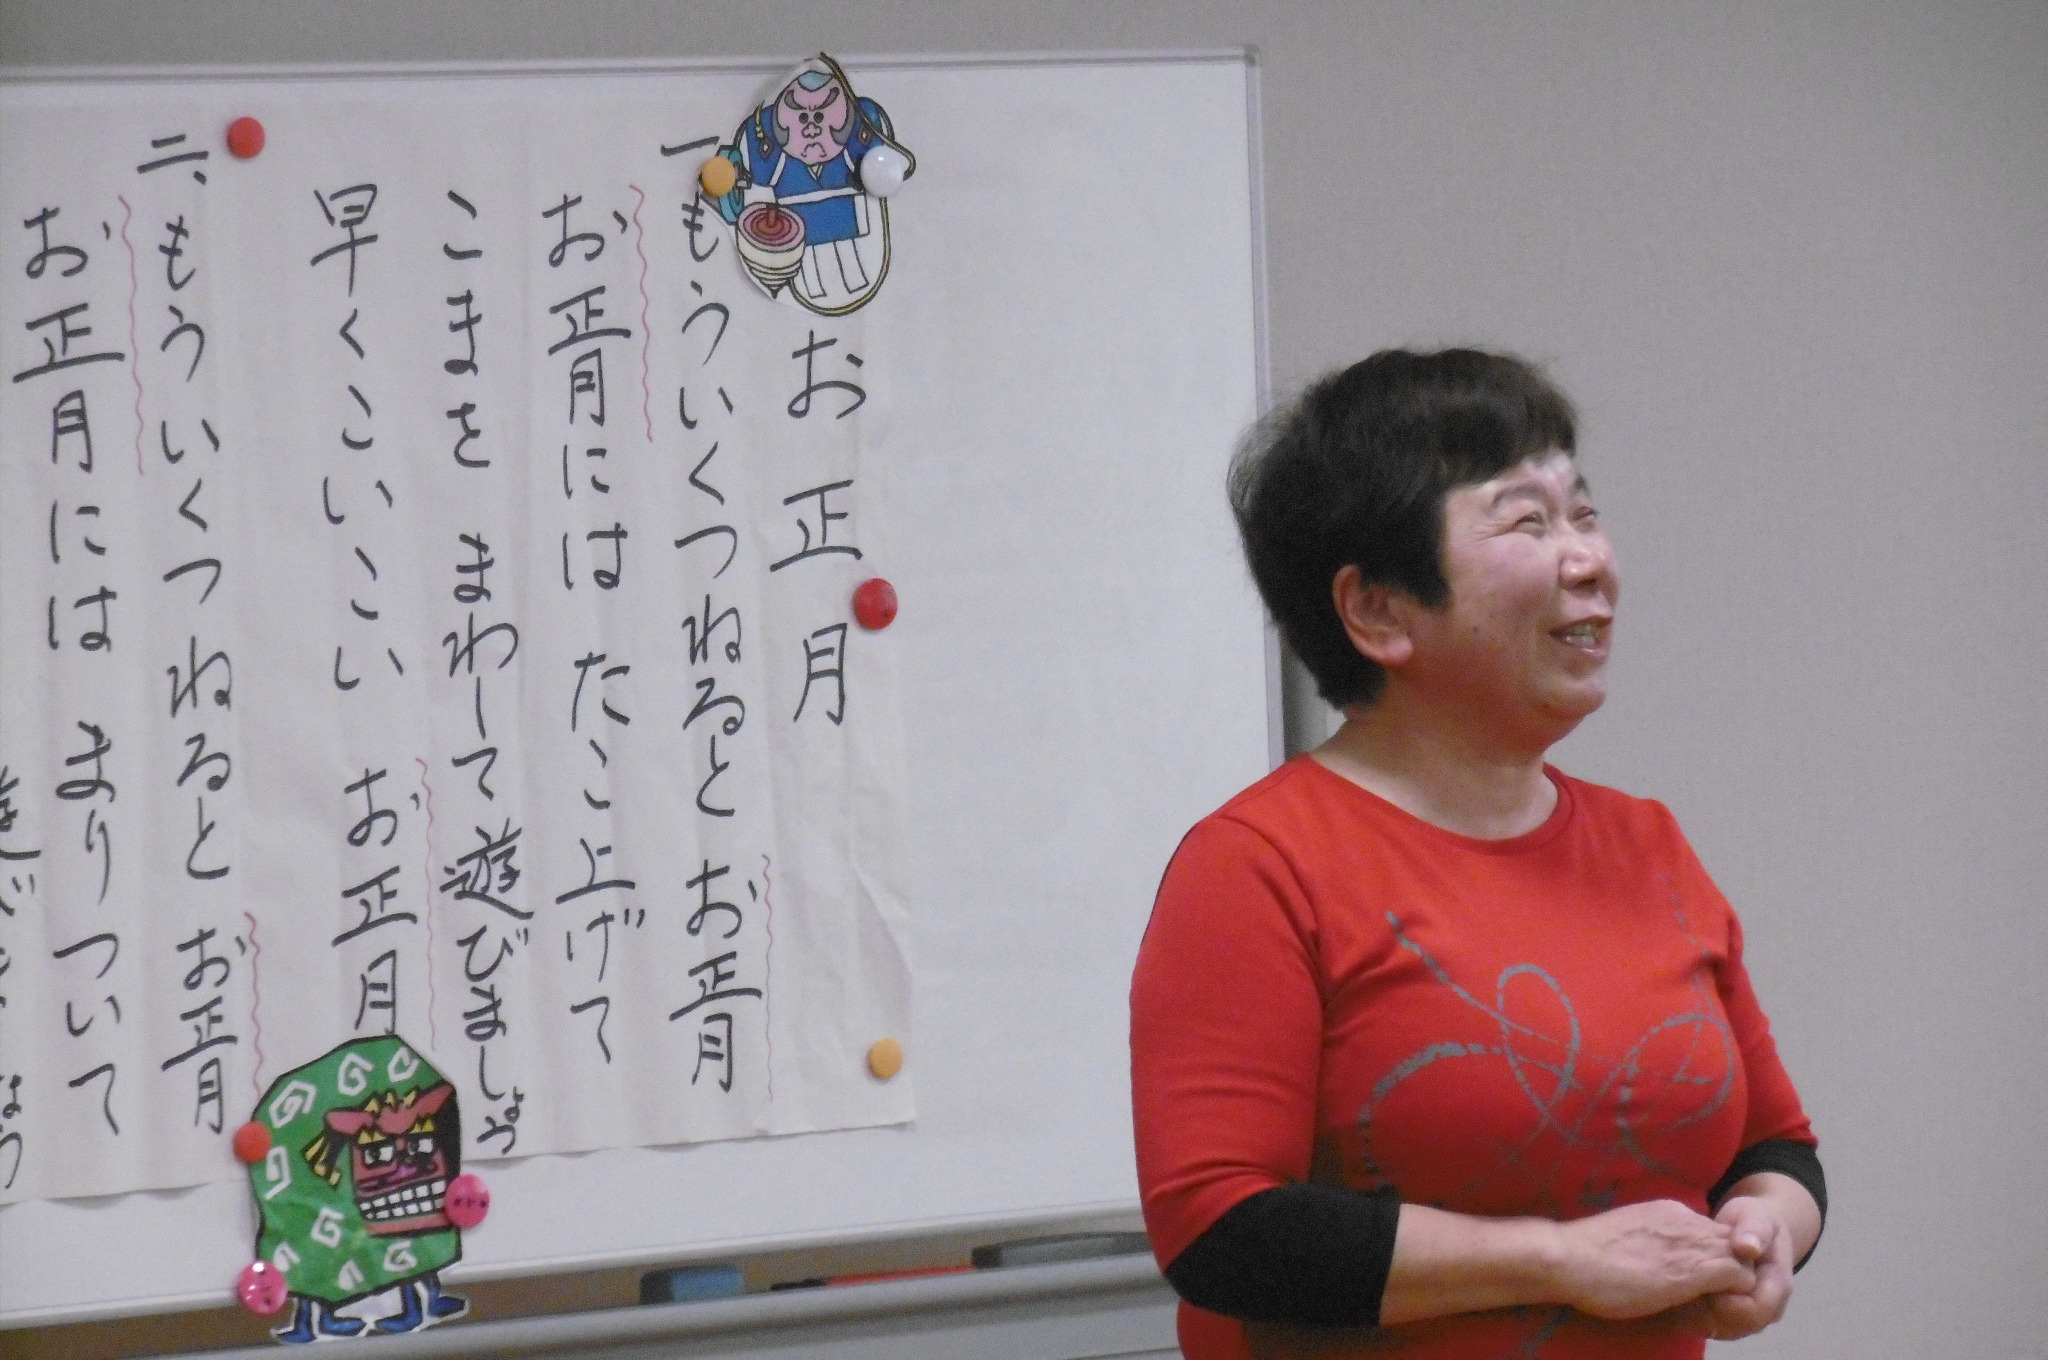 お正月
一、もういくつねるとお正月
お正月には たこ上げて
こまを まわーして遊びましょう
早くこいこい お正月
二、もういくつねるとお正月
お正月には まりついて